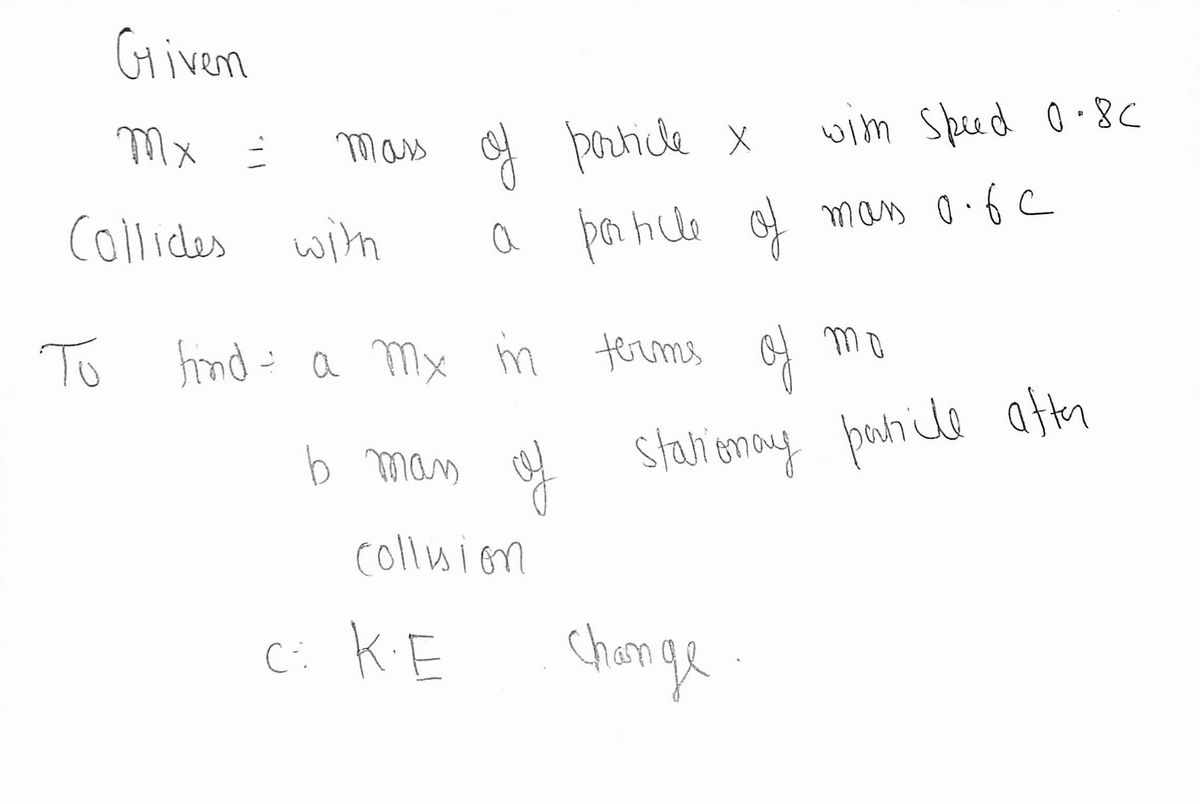 Given
Mx = mass of particle x with speed 0.8c
Collides with a particle of mass 0.6c
To find: a Mx in terms of mo
b mass of stationary particle after
collision
c: K.E change.